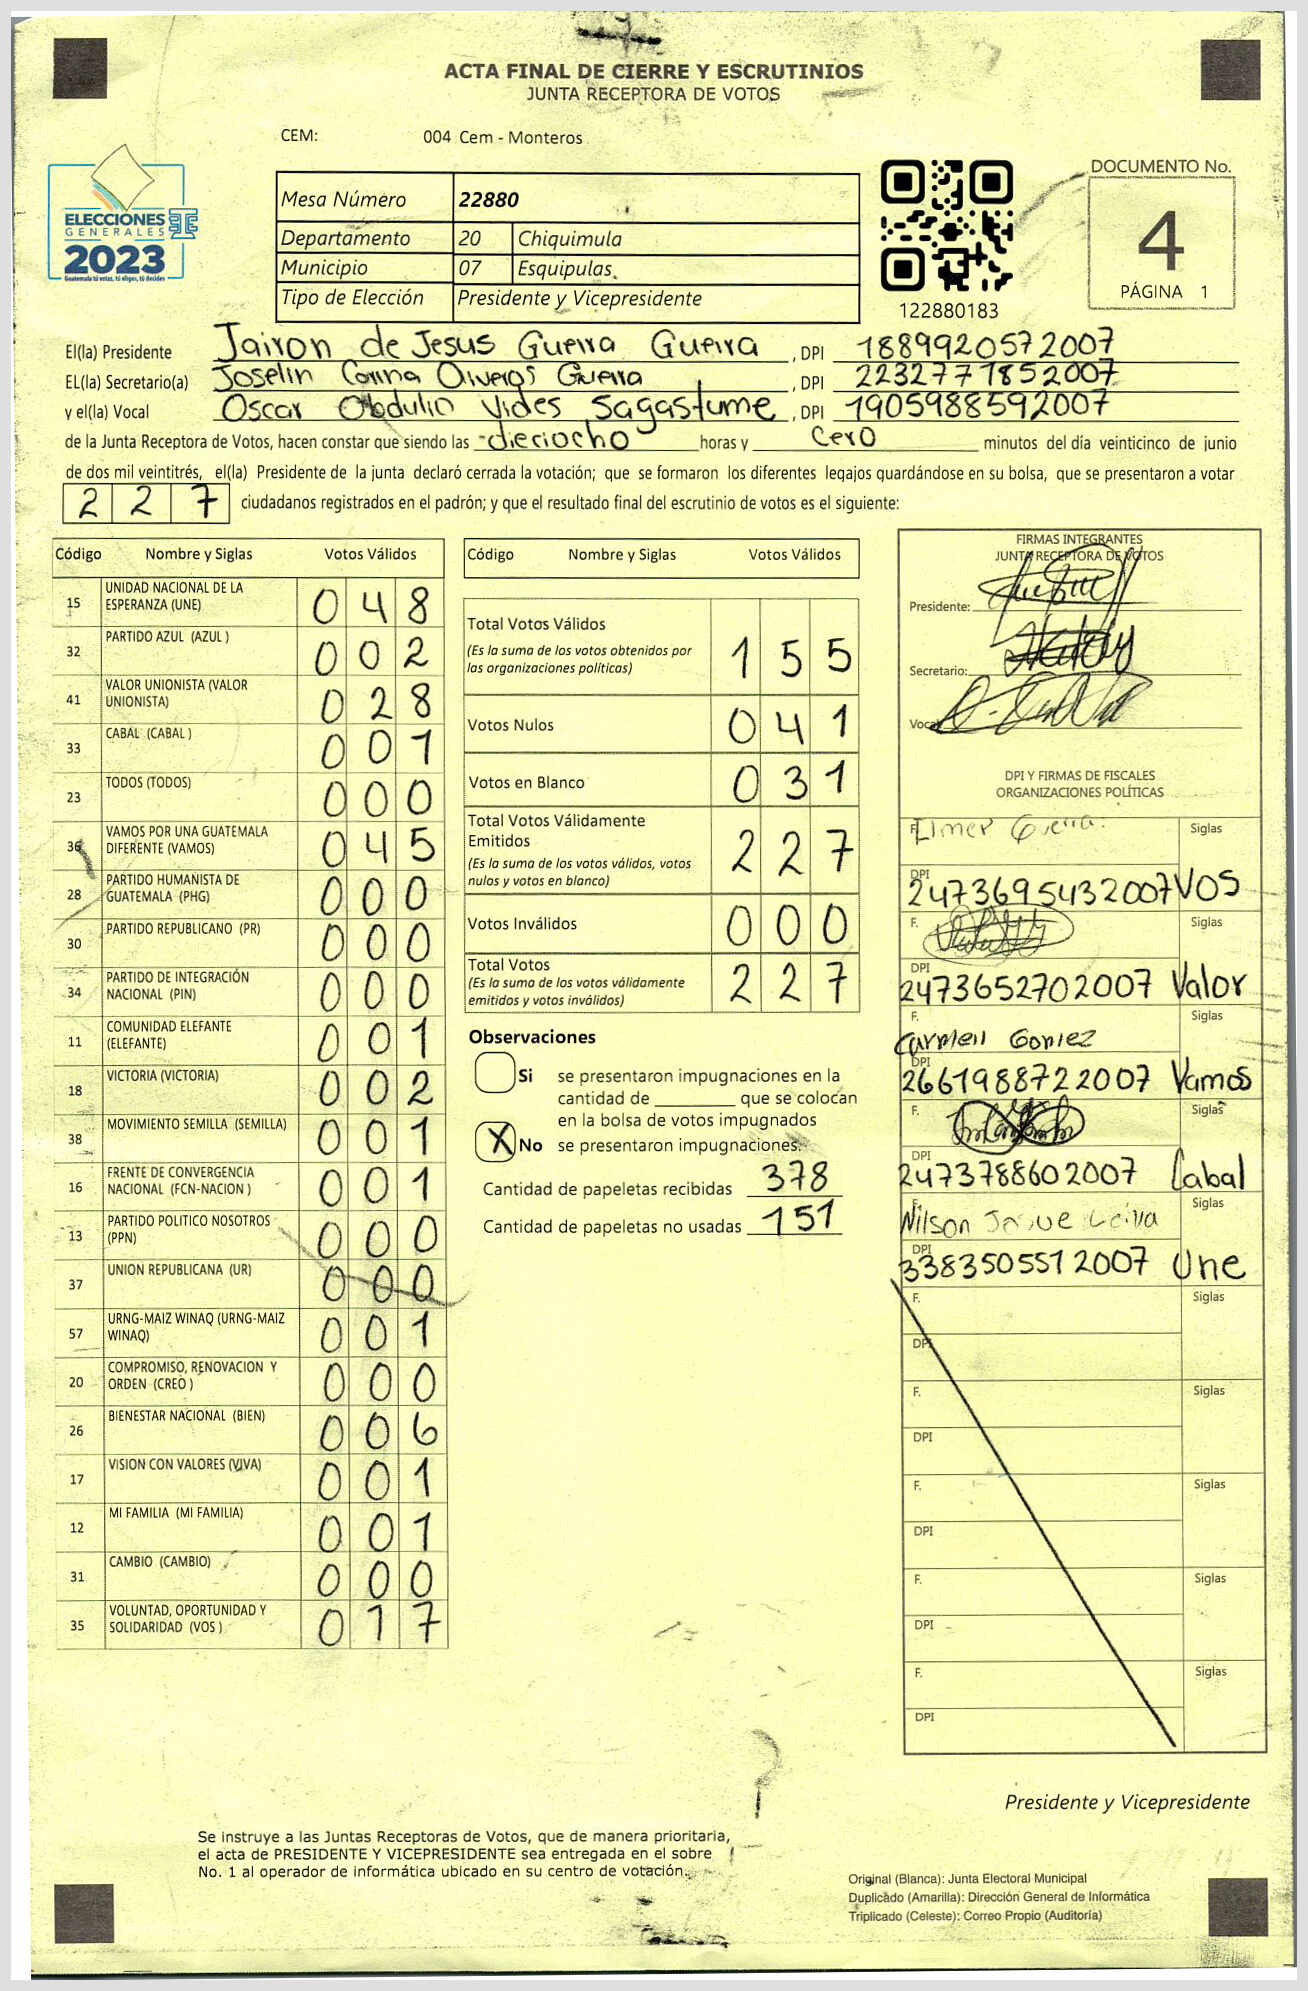 ACTA FINAL DE CIERRE Y ESCRUTINIOS
JUNTA RECEPTORA DE VOTOS
CEM: 004 Cem - Monteros
ELECCIONES
GENERALES
2023
Guatemala tú votas, tú eliges, tú decides
Mesa Número 22880
Departamento 20 Chiquimula
Municipio 07 Esquipulas
Tipo de Elección Presidente y Vicepresidente
122880183
DOCUMENTO No.
4
PÁGINA 1
El(la) Presidente Jairon de Jesus Guerra Guerra , DPI 1889920572007
EL(la) Secretario(a) Joselin Corina Oliveros Guerra , DPI 2232771852007
y el(la) Vocal Oscar Obdulio Vides Sagastume , DPI 1905988592007
de la Junta Receptora de Votos, hacen constar que siendo las dieciocho horas y cero minutos del día veinticinco de junio
de dos mil veintitrés, el(la) Presidente de la junta declaró cerrada la votación; que se formaron los diferentes legajos quardándose en su bolsa, que se presentaron a votar
2 2 7 ciudadanos registrados en el padrón; y que el resultado final del escrutinio de votos es el siguiente:
Código Nombre y Siglas Votos Válidos
15 UNIDAD NACIONAL DE LA ESPERANZA (UNE) 0 4 8
32 PARTIDO AZUL (AZUL ) 0 0 2
41 VALOR UNIONISTA (VALOR UNIONISTA) 0 2 8
33 CABAL (CABAL ) 0 0 1
23 TODOS (TODOS) 0 0 0
36 VAMOS POR UNA GUATEMALA DIFERENTE (VAMOS) 0 4 5
28 PARTIDO HUMANISTA DE GUATEMALA (PHG) 0 0 0
30 PARTIDO REPUBLICANO (PR) 0 0 0
34 PARTIDO DE INTEGRACIÓN NACIONAL (PIN) 0 0 0
11 COMUNIDAD ELEFANTE (ELEFANTE) 0 0 1
18 VICTORIA (VICTORIA) 0 0 2
38 MOVIMIENTO SEMILLA (SEMILLA) 0 0 1
16 FRENTE DE CONVERGENCIA NACIONAL (FCN-NACION ) 0 0 1
13 PARTIDO POLITICO NOSOTROS (PPN) 0 0 0
37 UNION REPUBLICANA (UR) 0 0 0
57 URNG-MAIZ WINAQ (URNG-MAIZ WINAQ) 0 0 1
20 COMPROMISO, RENOVACION Y ORDEN (CREO ) 0 0 0
26 BIENESTAR NACIONAL (BIEN) 0 0 6
17 VISION CON VALORES (VIVA) 0 0 1
12 MI FAMILIA (MI FAMILIA) 0 0 1
31 CAMBIO (CAMBIO) 0 0 0
35 VOLUNTAD, OPORTUNIDAD Y SOLIDARIDAD (VOS ) 0 1 7
Código Nombre y Siglas Votos Válidos
Total Votos Válidos 1 5 5
(Es la suma de los votos obtenidos por
las organizaciones políticas)
Votos Nulos 0 4 1
Votos en Blanco 0 3 1
Total Votos Válidamente
Emitidos 2 2 7
(Es la suma de los votos válidos, votos
nulos y votos en blanco)
Votos Inválidos 0 0 0
Total Votos 2 2 7
(Es la suma de los votos válidamente
emitidos y votos inválidos)
Observaciones
Si se presentaron impugnaciones en la
cantidad de ________ que se colocan
en la bolsa de votos impugnados
X No se presentaron impugnaciones.
Cantidad de papeletas recibidas 378
Cantidad de papeletas no usadas 151
FIRMAS INTEGRANTES
JUNTA RECEPTORA DE VOTOS
Presidente:
Secretario:
Vocal
DPI Y FIRMAS DE FISCALES
ORGANIZACIONES POLÍTICAS
F. Elmer Guerra. Siglas
DPI 2473695432007 VOS
F. Siglas
DPI 2473652702007 Valor
F. Carmen Gomez Siglas
DPI 2661988722007 Vamos
F. Siglas
DPI 2473788602007 Cabal
F. Nilson Josue Leiva Siglas
DPI 3383505512007 Une
F. Siglas
DPI
F. Siglas
DPI
F. Siglas
DPI
F. Siglas
DPI
F. Siglas
DPI
Presidente y Vicepresidente
Se instruye a las Juntas Receptoras de Votos, que de manera prioritaria,
el acta de PRESIDENTE Y VICEPRESIDENTE sea entregada en el sobre
No. 1 al operador de informática ubicado en su centro de votación.
Original (Blanca): Junta Electoral Municipal
Duplicado (Amarilla): Dirección General de Informática
Triplicado (Celeste): Correo Propio (Auditoría)